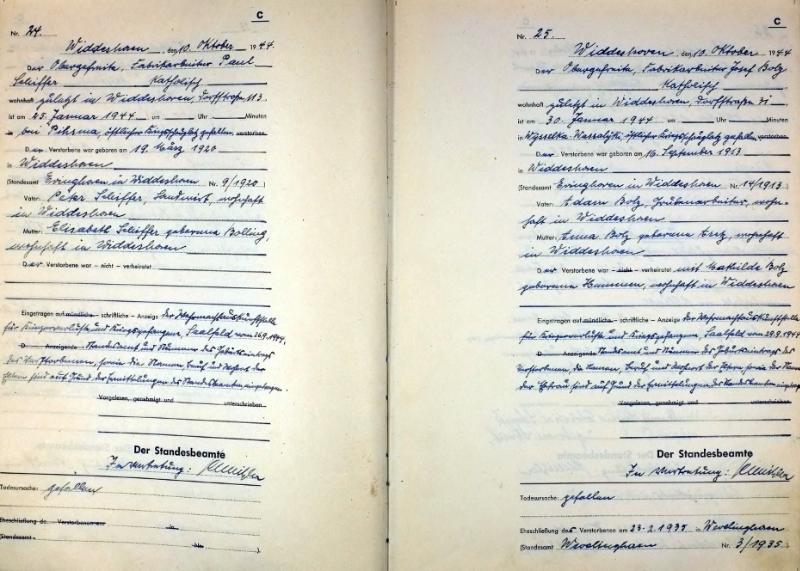 C
Nr. 24.
Widdeshoven, den 10. Oktober 1944
Der Obergefreite, Fabrikarbeiter Paul
Schiffer Katholisch
wohnhaft zuletzt in Widdeshoven, Dorfstraße 113
ist am 25. Januar 1944 um Uhr Minuten
in bei östlicher Kriegsschauplatz gefallen verstorben.
Der Verstorbene war geboren am 19. März 1920
in Widdeshoven
(Standesamt Evinghoven in Widdeshoven Nr. 9/1920)
Vater: Peter Schiffer, Landwirt, wohnhaft
in Widdeshoven
Mutter: Elisabeth Schiffer geborene Bolling,
wohnhaft in Widdeshoven
Der Verstorbene war – nicht – verheiratet
Eingetragen auf mündliche – schriftliche – Anzeige der Wehrmachtauskunftstelle
für Kriegerverluste und Kriegsgefangene, Saalfeld vom 26.9.1944.
D Anzeigende Standesamt und Nummer des Geburtseintrags
des Verstorbenen, sowie die Namen, Beruf und Wohnort der
Eltern sind auf Grund der Ermittlungen des Standesbeamten eingetragen.
Vorgelesen, genehmigt und unterschrieben
Der Standesbeamte
In Vertretung:
Todesursache: gefallen
Eheschließung de Verstorbenen am in
(Standesamt Nr. ).
C
Nr. 25.
Widdeshoven, den 10. Oktober 1944
Der Obergefreite, Fabrikarbeiter Josef Bolz
Katholisch
wohnhaft zuletzt in Widdeshoven, Dorfstraße 71
ist am 30. Januar 1944 um Uhr Minuten
in östlicher Kriegsschauplatz gefallen verstorben.
Der Verstorbene war geboren am 16. September 1913
in Widdeshoven
(Standesamt Evinghoven in Widdeshoven Nr. 14/1913)
Vater: Adam Bolz, Grubenarbeiter, wohn-
haft in Widdeshoven
Mutter: Anna Bolz geborene wohnhaft
in Widdeshoven
Der Verstorbene war – nicht – verheiratet mit Mathilde Bolz
geborene wohnhaft in Widdeshoven
Eingetragen auf mündliche – schriftliche – Anzeige der Wehrmachtauskunftstelle
für Kriegerverluste und Kriegsgefangene, Saalfeld vom 29.9.1944
D Anzeigende Standesamt und Nummer des Geburtseintrags des
Verstorbenen, die Namen, Beruf und Wohnort der Eltern, sowie der Name
der Ehefrau sind auf Grund der Ermittelungen des Standesbeamten eingetragen
Vorgelesen, genehmigt und unterschrieben
Der Standesbeamte
In Vertretung:
Todesursache: gefallen
Eheschließung des Verstorbenen am 23.2.1935 in Wevelinghoven
(Standesamt Wevelinghoven Nr. 3/1935).